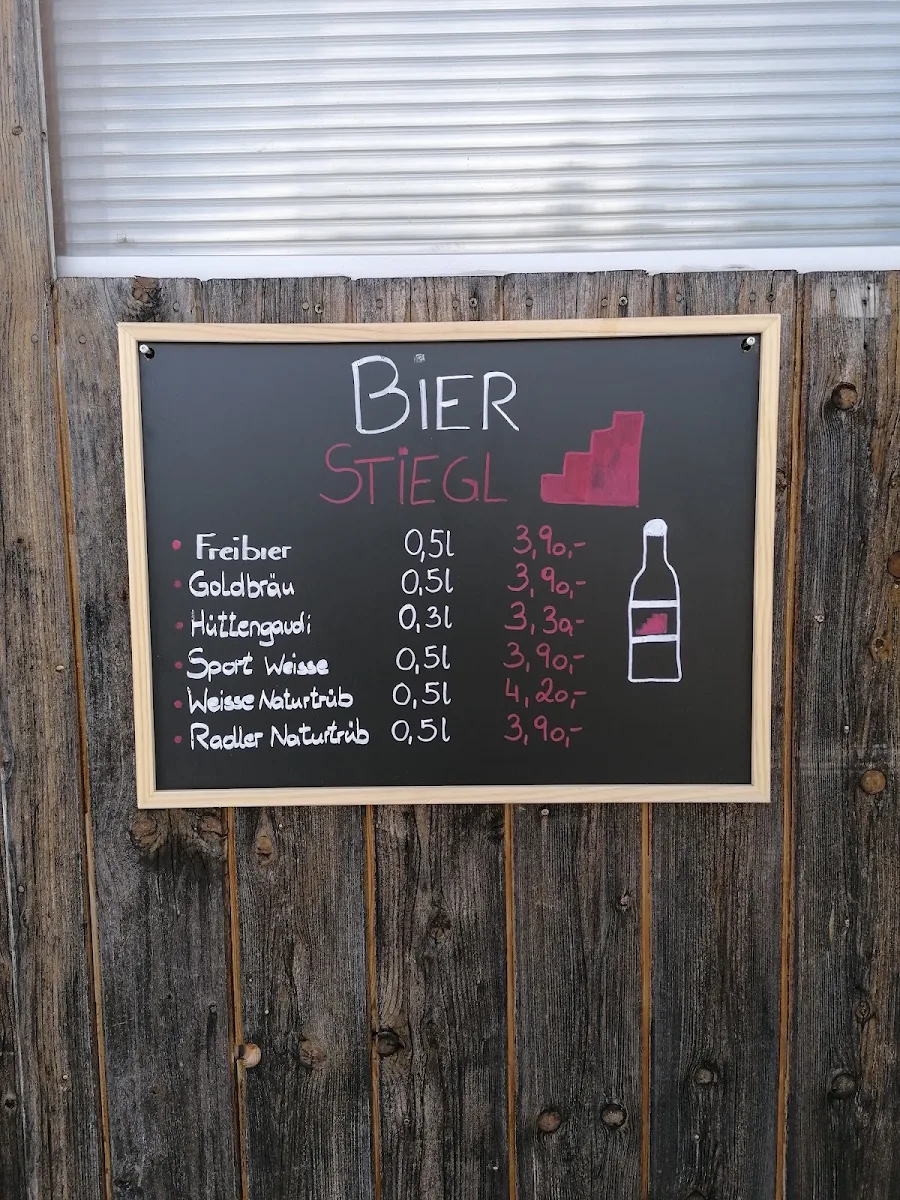 BiER
STiEGL
• Freibier 0,5l 3,90,-
• Goldbräu 0,5l 3,90,-
• Hüttengaudi 0,3l 3,30,-
• Sport Weisse 0,5l 3,90,-
• Weisse Naturtrüb 0,5l 4,20,-
• Radler Naturtrüb 0,5l 3,90,-